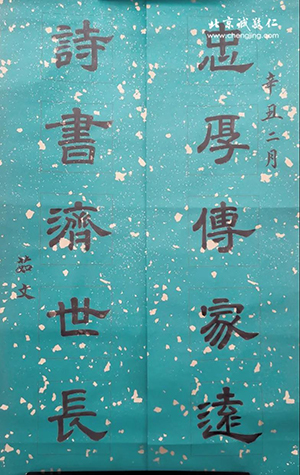 北京诚敬仁
www.chengjing.com
辛丑二月
忠厚傳家遠
詩書濟世長
茹文